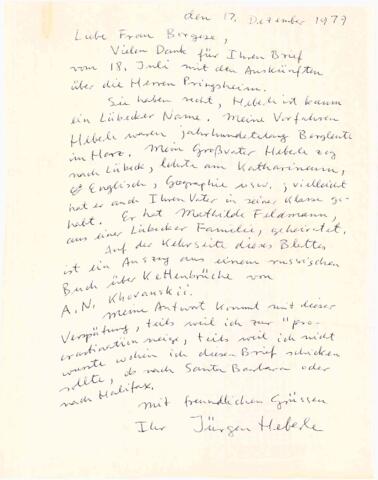 den 17. Dezember 1977
Liebe Frau Borgese,
Vielen Dank für Ihren Brief
vom 18. Juli mit den Auskünften
über die Herren Pringsheim.
Sie haben recht, Heberle ist kaum
ein Lübecker Name. Meine Vorfahren
Heberle waren jahrhundertelang Bergleute
im Harz. Mein Großvater Heberle zog
nach Lübeck, lehrte am Katharineum,
Englisch, Geographie usw.; vielleicht
hat er auch Ihren Vater in seiner Klasse ge-
habt. Er hat Mathilde Feldmann,
aus einer Lübecker Familie, geheiratet.
Auf der Kehrseite dieses Blattes
ist ein Auszug aus einem russischen
Buch über Kettenbrüche von
A. N. Khovanskii.
Meine Antwort kommt mit dieser
Verspätung, teils weil ich zur "pro-
crastination neige, teils weil ich nicht
wusste wohin ich diesen Brief schicken
sollte, ob nach Santa Barbara oder
nach Halifax.
Mit freundlichen Grüssen
Ihr Jürgen Heberle